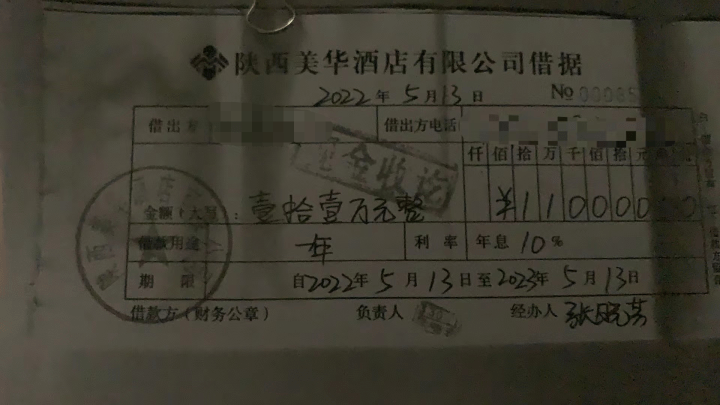 陕西美华酒店有限公司借据
2022年5月13日 No 00085
借出方 借出方电话
现金收讫
仟佰拾万千佰拾元角
金额(大写):壹拾壹万元整 ¥11000000
借款用途 一年 利率 年息10%
期限 自2022年5月13日至2023年5月13日
借款方(财务公章) 负责人 经办人